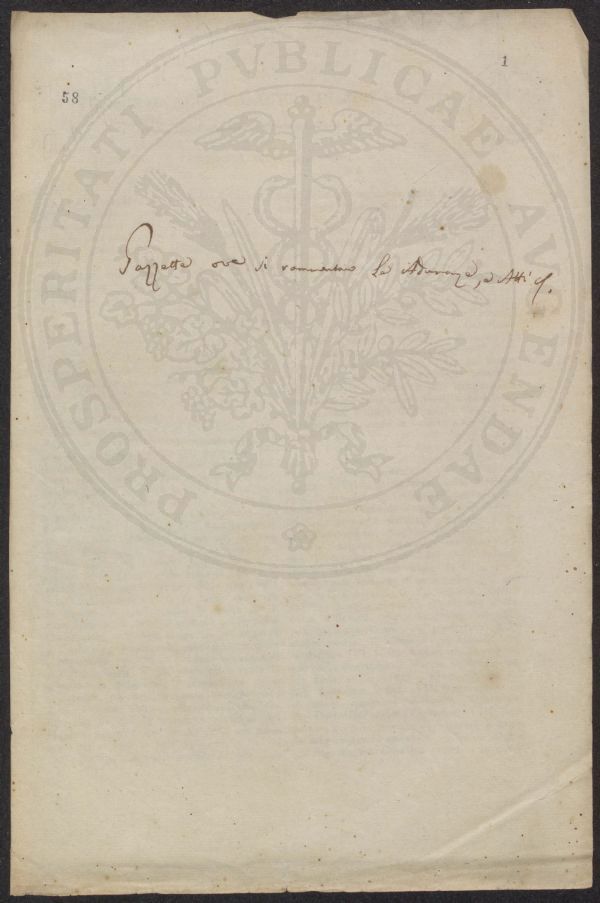 1
58
PROSPERITATI PVBLICAE AVGENDAE
Gazzette ove si rammentano le Adunanze, e Atti